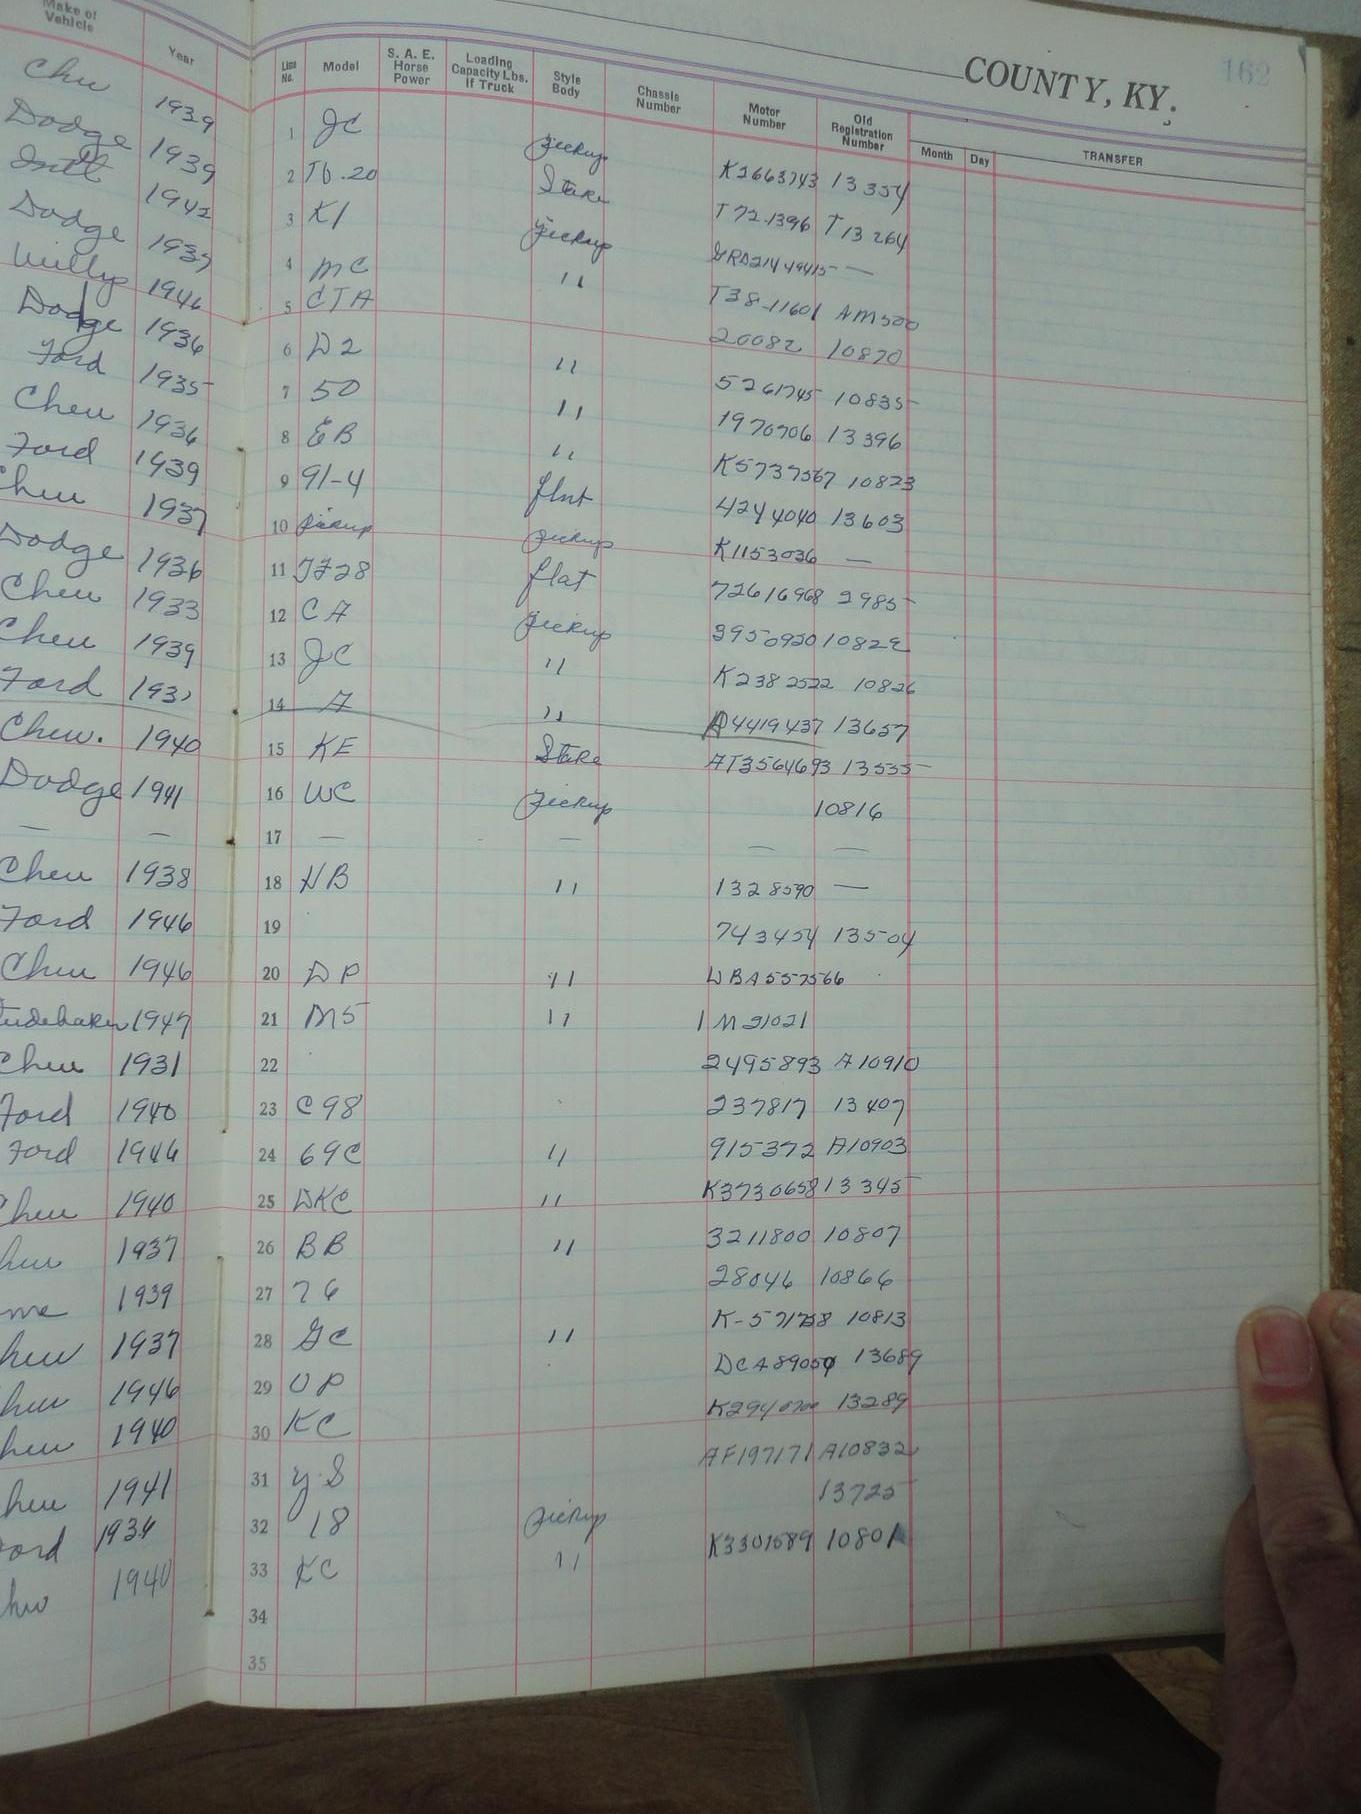 162
COUNTY, KY.
Make of Vehicle Year Line No. Model S. A. E. Horse Power Loading Capacity Lbs. if Truck Style Body Chassis Number Motor Number Old Registration Number Month Day TRANSFER
Chev 1939 1 JC Pickup K2663743 13354
Dodge 1939 2 T6.20 Stake T72-1396 T13264
Intl 1942 3 K1 Pickup GRD21449415 —
Dodge 1937 4 MC " T38-11601 AM500
Willys 1946 5 CTA 20082 10870
Dodge 1936 6 D2 " 5261745 10835
Ford 1935 7 50 " 1970706 13396
Chev 1936 8 EB " K5737567 10823
Ford 1939 9 91-4 flat 4244040 13603
Chev 1937 10 Pickup Pickup K1153036 —
Dodge 1936 11 TF28 flat 72616968 2985
Chev 1933 12 CA Pickup 3950920 10822
Chev 1939 13 JC " K2382522 10826
Ford 14 A " A4419437 13657
Chev. 1940 15 KF Stake AT3564693 13535
Dodge 1941 16 WC Pickup 10816
— — 17 — — — —
Chev 1938 18 HB " 1328590 —
Ford 1946 19 743454 13504
Chev 1946 20 DP " DBA557566
Studebaker 1947 21 M5 " 1M21021
Chev 1931 22 2495893 A10910
Ford 1940 23 C98 237817 13407
Ford 1946 24 69C " 915372 A10903
Chev 1940 25 DKC " K3730658 13345
hev 1937 26 BB " 3211800 10807
me 1939 27 76 28046 10866
hev 1937 28 GC " 10813
hev 1946 29 OP 13689
hev 1940 30 KC 13289
hev 1941 31 Y-S AF197171 A10832
ord 1936 32 18 Pickup 13725
hev 1940 33 KC " K3301589 10801
34
35